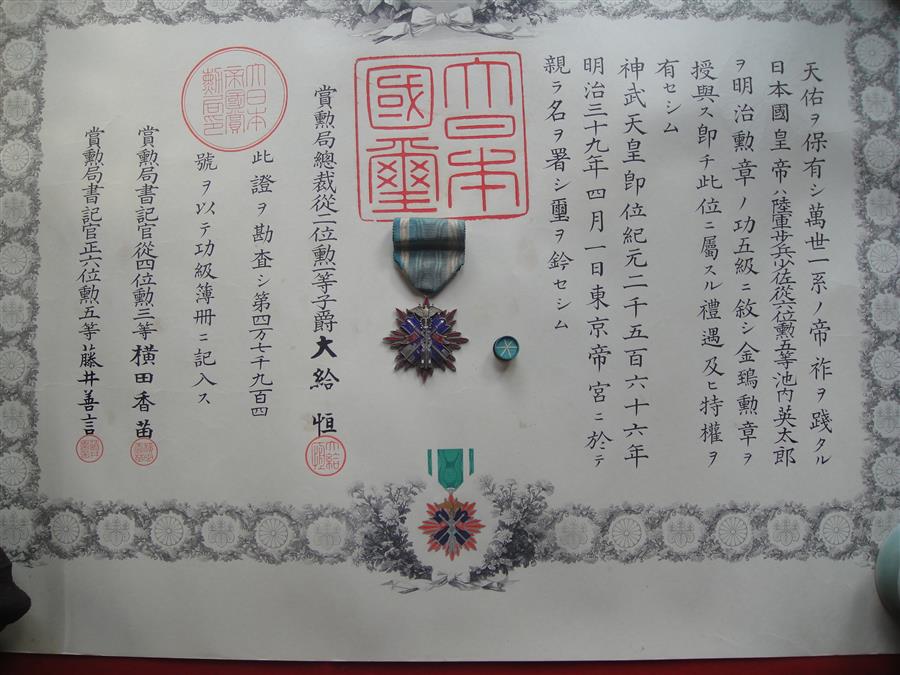 天佑ヲ保有シ萬世一系ノ帝祚ヲ踐タル
日本國皇帝ハ陸軍步兵少佐從六位勲五等池内英太郎
ヲ明治勲章ノ功五級ニ敘シ金鵄勲章ヲ
授與ス卽チ此位ニ屬スル禮遇及ヒ特權ヲ
有セシム
神武天皇卽位紀元二千五百六十六年
明治三十九年四月一日東京帝宮ニ於テ
親ラ名ヲ署シ璽ヲ鈐セシム
大日本
國璽
賞勲局總裁從二位勲一等子爵大給恒
此證ヲ勘査シ第四万七千九百四
號ヲ以テ功級簿册ニ記入ス
大日本
帝國賞
勲局印
賞勲局書記官從四位勲三等橫田香苗
賞勲局書記官正六位勲五等藤井善言